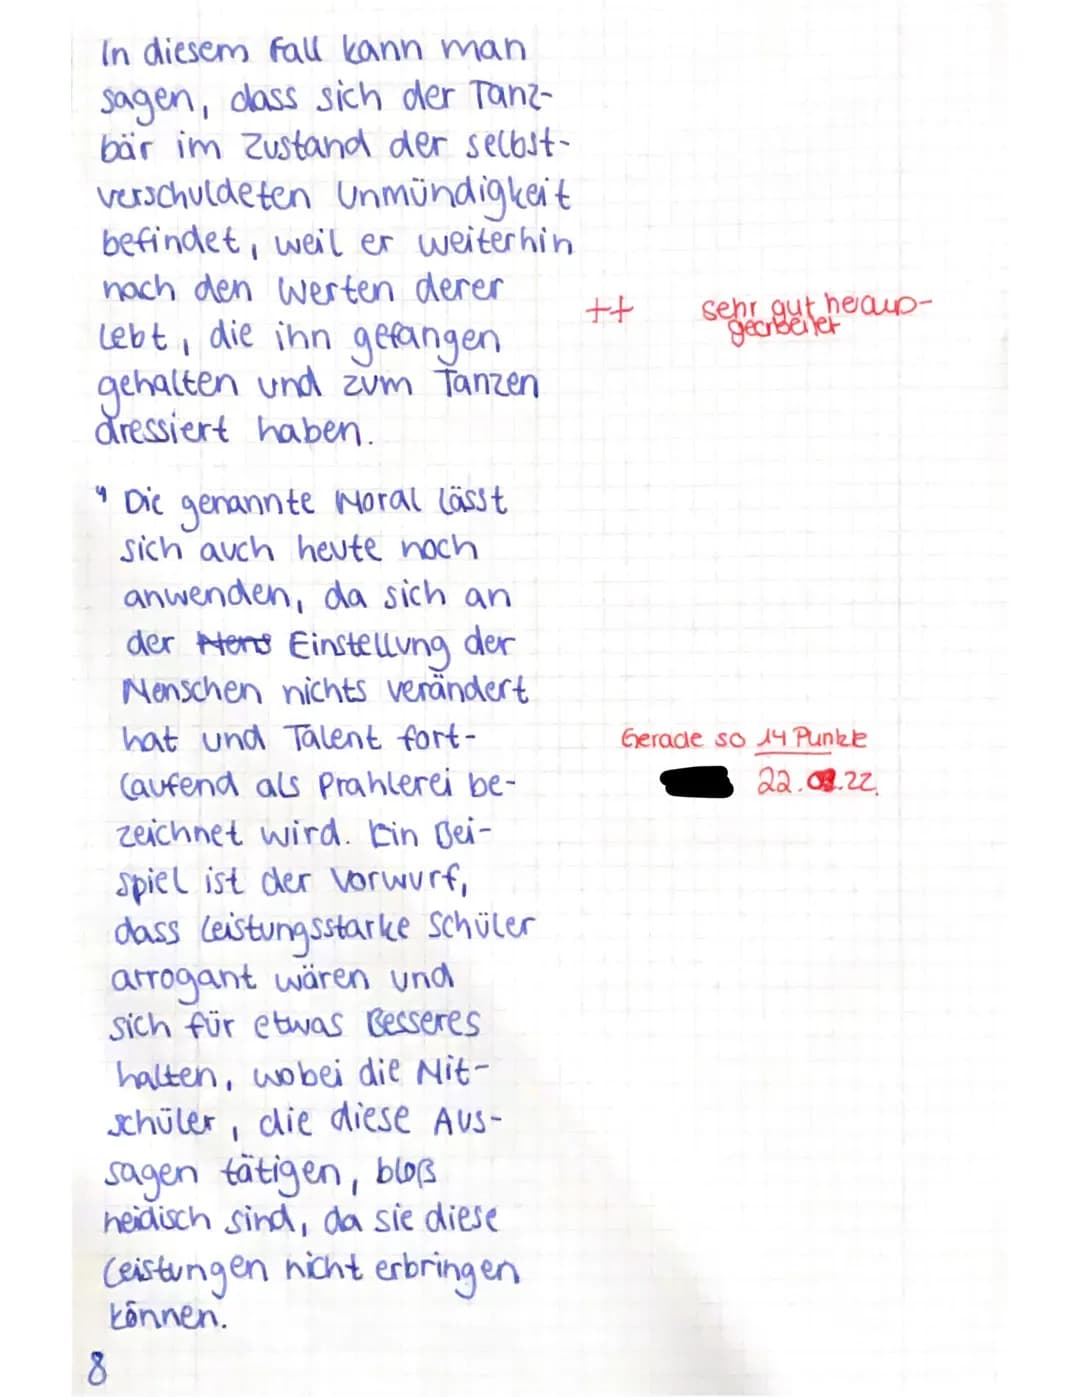 In diesem Fall kann man
sagen, dass sich der Tanz-
bär im Zustand der selbst-
verschuldeten Unmündigkeit
befindet, weil er weiterhin
nach den Werten derer
lebt, die ihn gefangen
++ sehr gut heraus-
gearbeitet
gehalten und zum Tanzen
dressiert haben.
4 Die genannte Moral lässt
sich auch heute noch
anwenden, da sich an
der Einstellung der
Menschen nichts verändert
hat und Talent fort-
Gerade so 14 Punkte
laufend als Prahlerei be-
22.03.22.
zeichnet wird. Ein Bei-
spiel ist der Vorwurf,
dass leistungsstarke Schüler
arrogant wären und
sich für etwas Besseres
halten, wobei die Mit-
schüler, die diese Aus-
sagen tätigen, bloß
neidisch sind, da sie diese
Leistungen nicht erbringen
können.
8